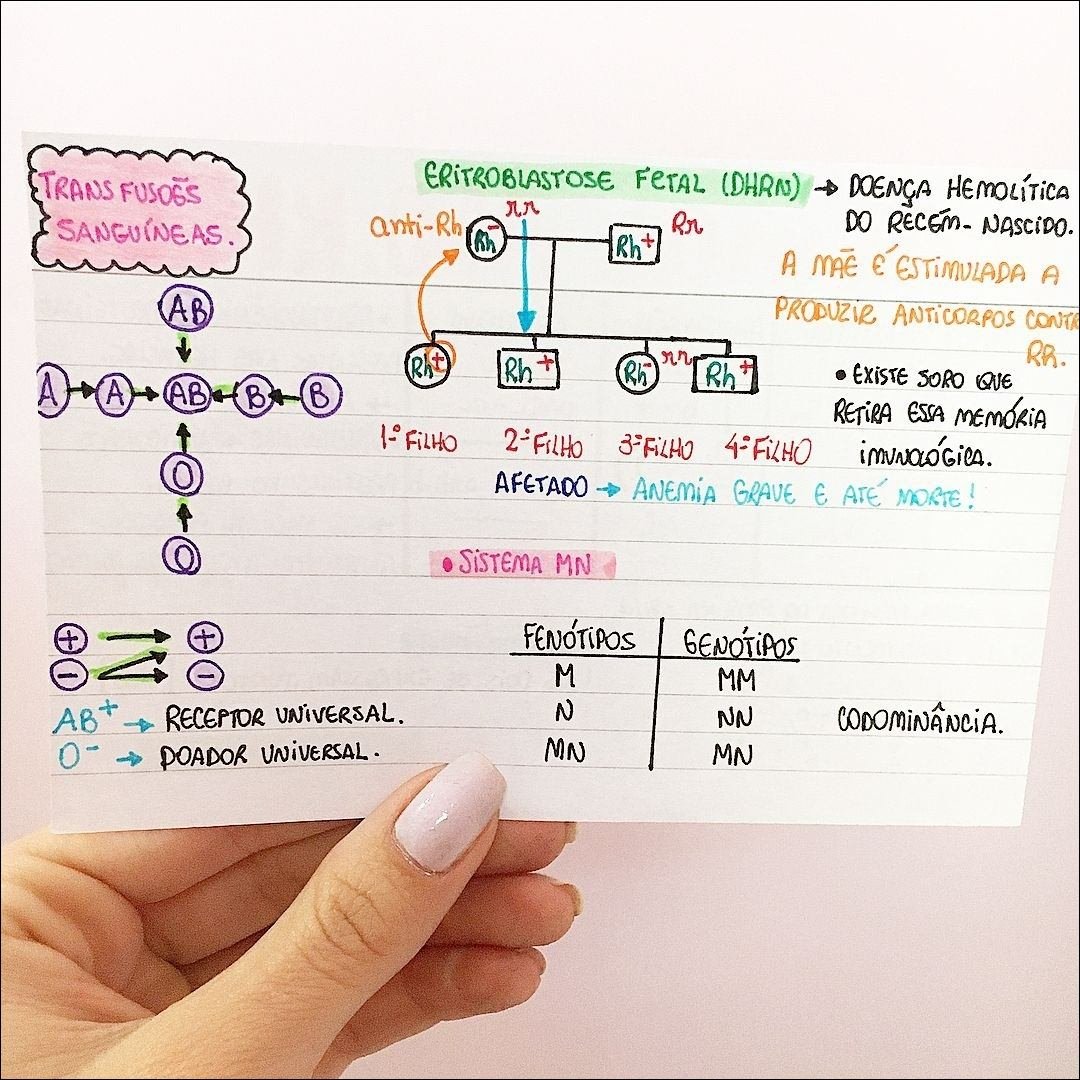 TRANSFUSOẼS
SANGUÍNEAS.
AB
A A AB B B
O
O
+ +
- -
AB+ → RECEPTOR UNIVERSAL.
O- → DOADOR UNIVERSAL.
ERITROBLASTOSE FETAL (DHRN) → DOENÇA HEMOLÍTICA
DO RECÉM-NASCIDO.
anti-Rh Rh- rr Rh+ Rr
A MÃE É ESTIMULADA A
PRODUZIR ANTICORPOS
RR.
Rh+ Rh+ Rh- rr Rh+
1º FILHO 2º FILHO 3º FILHO 4º FILHO
AFETADO → ANEMIA GRAVE E ATÉ MORTE!
• EXISTE SORO QUE
RETIRA ESSA MEMÓRIA
IMUNOLÓGICA.
• SISTEMA MN
FENÓTIPOS GENÓTIPOS
M MM
N NN CODOMINÂNCIA.
MN MN